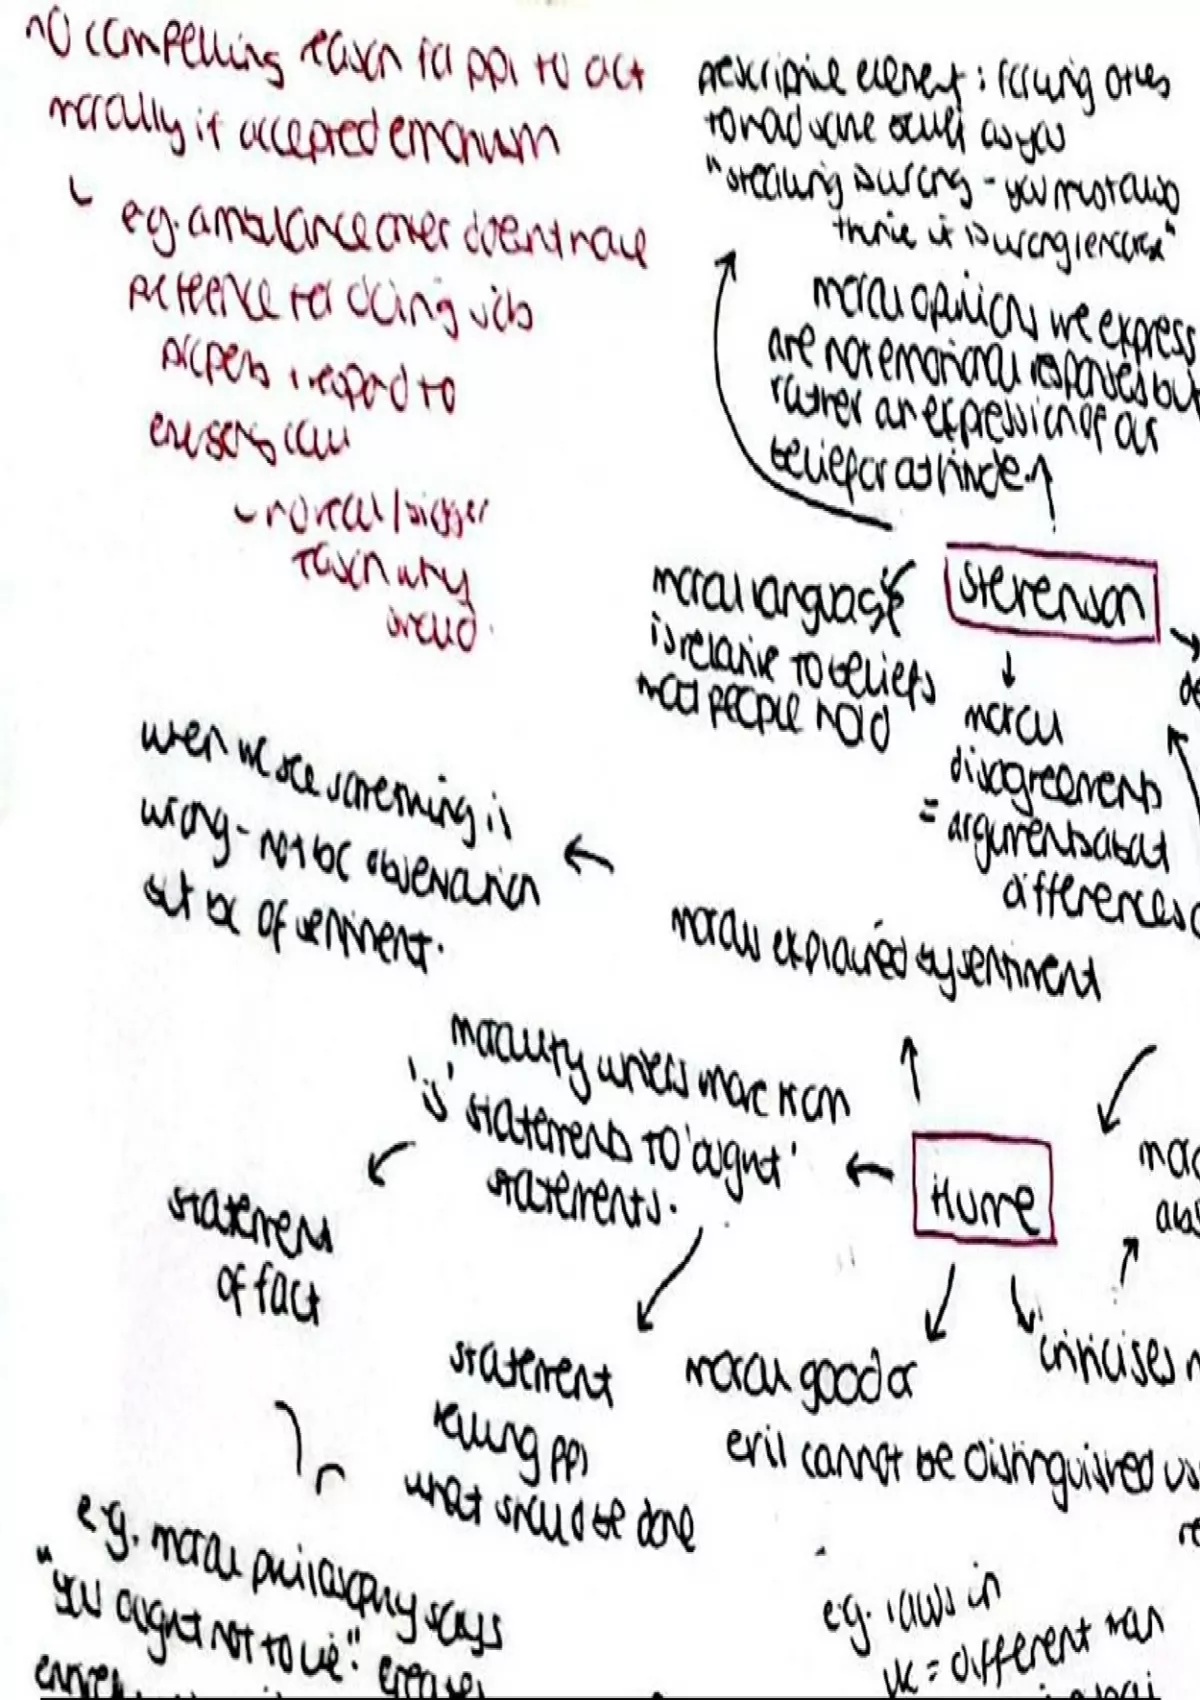 no compelling reason for ppl to act
morally if accepted emotivism
e.g. ambulance driver doesn't have
preference for doing job
properly respond to
emergency call
no real/bigger
reason why
should.
prescriptive element: forcing others
to hold same belief as you
"stealing is wrong - you must also
think it is wrong
moral opinions we express
are not emotional responses but
rather an expression of our
belief or attitude.
Stevenson
moral language
is relative to beliefs
most people hold
moral
disagreements
= arguments about
differences
when we see something is
wrong - not bc observation
but bc of sentiment.
morals explained by sentiment
morality writers move from
'is' statements to 'ought'
statements.
Hume
statement
of fact
statement
telling ppl
what should be done
moral good or
evil cannot be distinguished
criticises
e.g. moral philosophy says
"you ought not to lie".
e.g. laws in
UK = different than